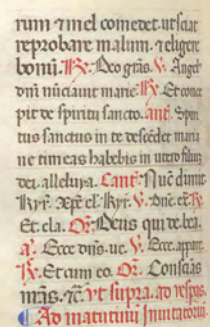 rum ⁊ mel comedet. ut sciat
reprobare malum. ⁊ eligere
bonū. ℟. Deo grãs. ℣. Angelꝰ
dn̄i nūciauit marie. ℟. Et conce
pit de spiritu sancto. anã. Spiri
tus sanctus in te descēdet maria
ne timeas habebis in utero filiū
dei. alleluya. Cant̄. Nūc dimit.
Kyr̃. xp̄e el. Kyr̃. ℣. Dn̄e. ex̄. ℟.
Et. cla. Or̃. Deus qui de bea.
a. Ecce dn̄s. ue. ℣. Ecce. appare.
℟. Et cum eo. Or̃. Consciās
n̄ras. ⁊c̄. vt supra. ad vesp̃as.
Ad matutinū Inuitatoriū.